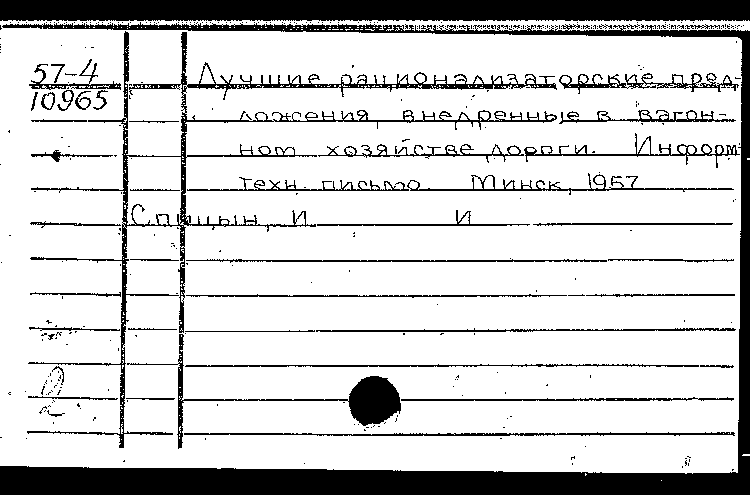 57-4 Лучшие рационализаторские пред-
10965
ложения, внедренные в вагон-
ном хозяйстве дороги. Информ
техн. письмо. Минск, 1957
Спицын, И. И
2